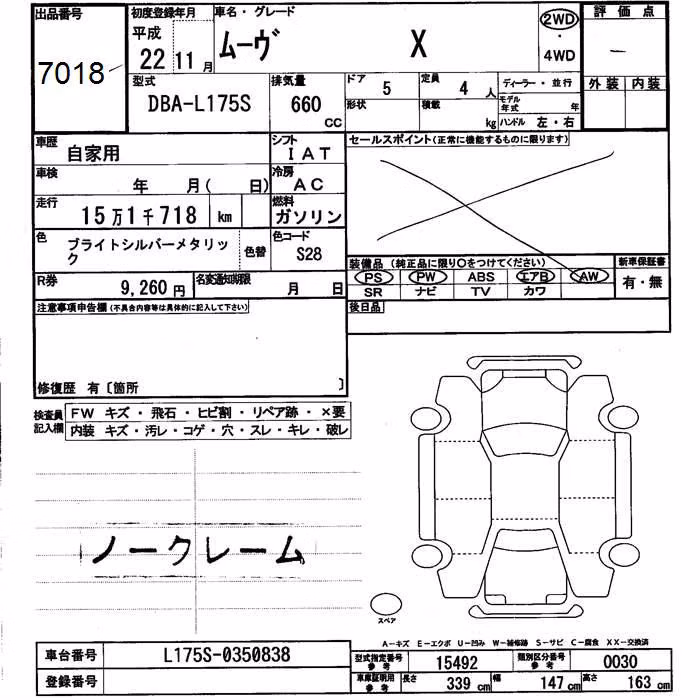 出品番号
7018
初度登録年月
平成
22年 11月
車名・グレード
ムーヴ X
2WD
・
4WD
評価点
—
外装 内装
型式
DBA-L175S
排気量
660
CC
ドア
5
定員
4 人
形状
積載
kg
ディーラー・並行
モデル年式 年
ハンドル 左・右
車歴
自家用
シフト
IAT
車検
年 月( 日)
冷房
AC
走行
15万1千718 km
燃料
ガソリン
色
ブライトシルバーメタリック
色替
色コード
S28
R券
9,260 円
名変通知期限
月 日
セールスポイント(正常に機能するものに限ります)
装備品 (純正品に限り○をつけてください)
PS PW ABS エアB AW
SR ナビ TV カワ
新車保証書
有・無
後日品
注意事項申告欄(不具合内容等は具体的に記入して下さい)
修復歴 有〔箇所 〕
検査員記入欄
FW キズ・飛石・ヒビ割・リペア跡・×要
内装 キズ・汚レ・コゲ・穴・スレ・キレ・破レ
ノークレーム
スペア
A-キズ E-エクボ U-凹み W-補修跡 S-サビ C-腐食 XX-交換済
車台番号
L175S-0350838
登録番号
型式指定番号
参考
15492
類別区分番号
参考
0030
車庫証明用
参考
長さ 339 cm
幅 147 cm
高さ 163 cm